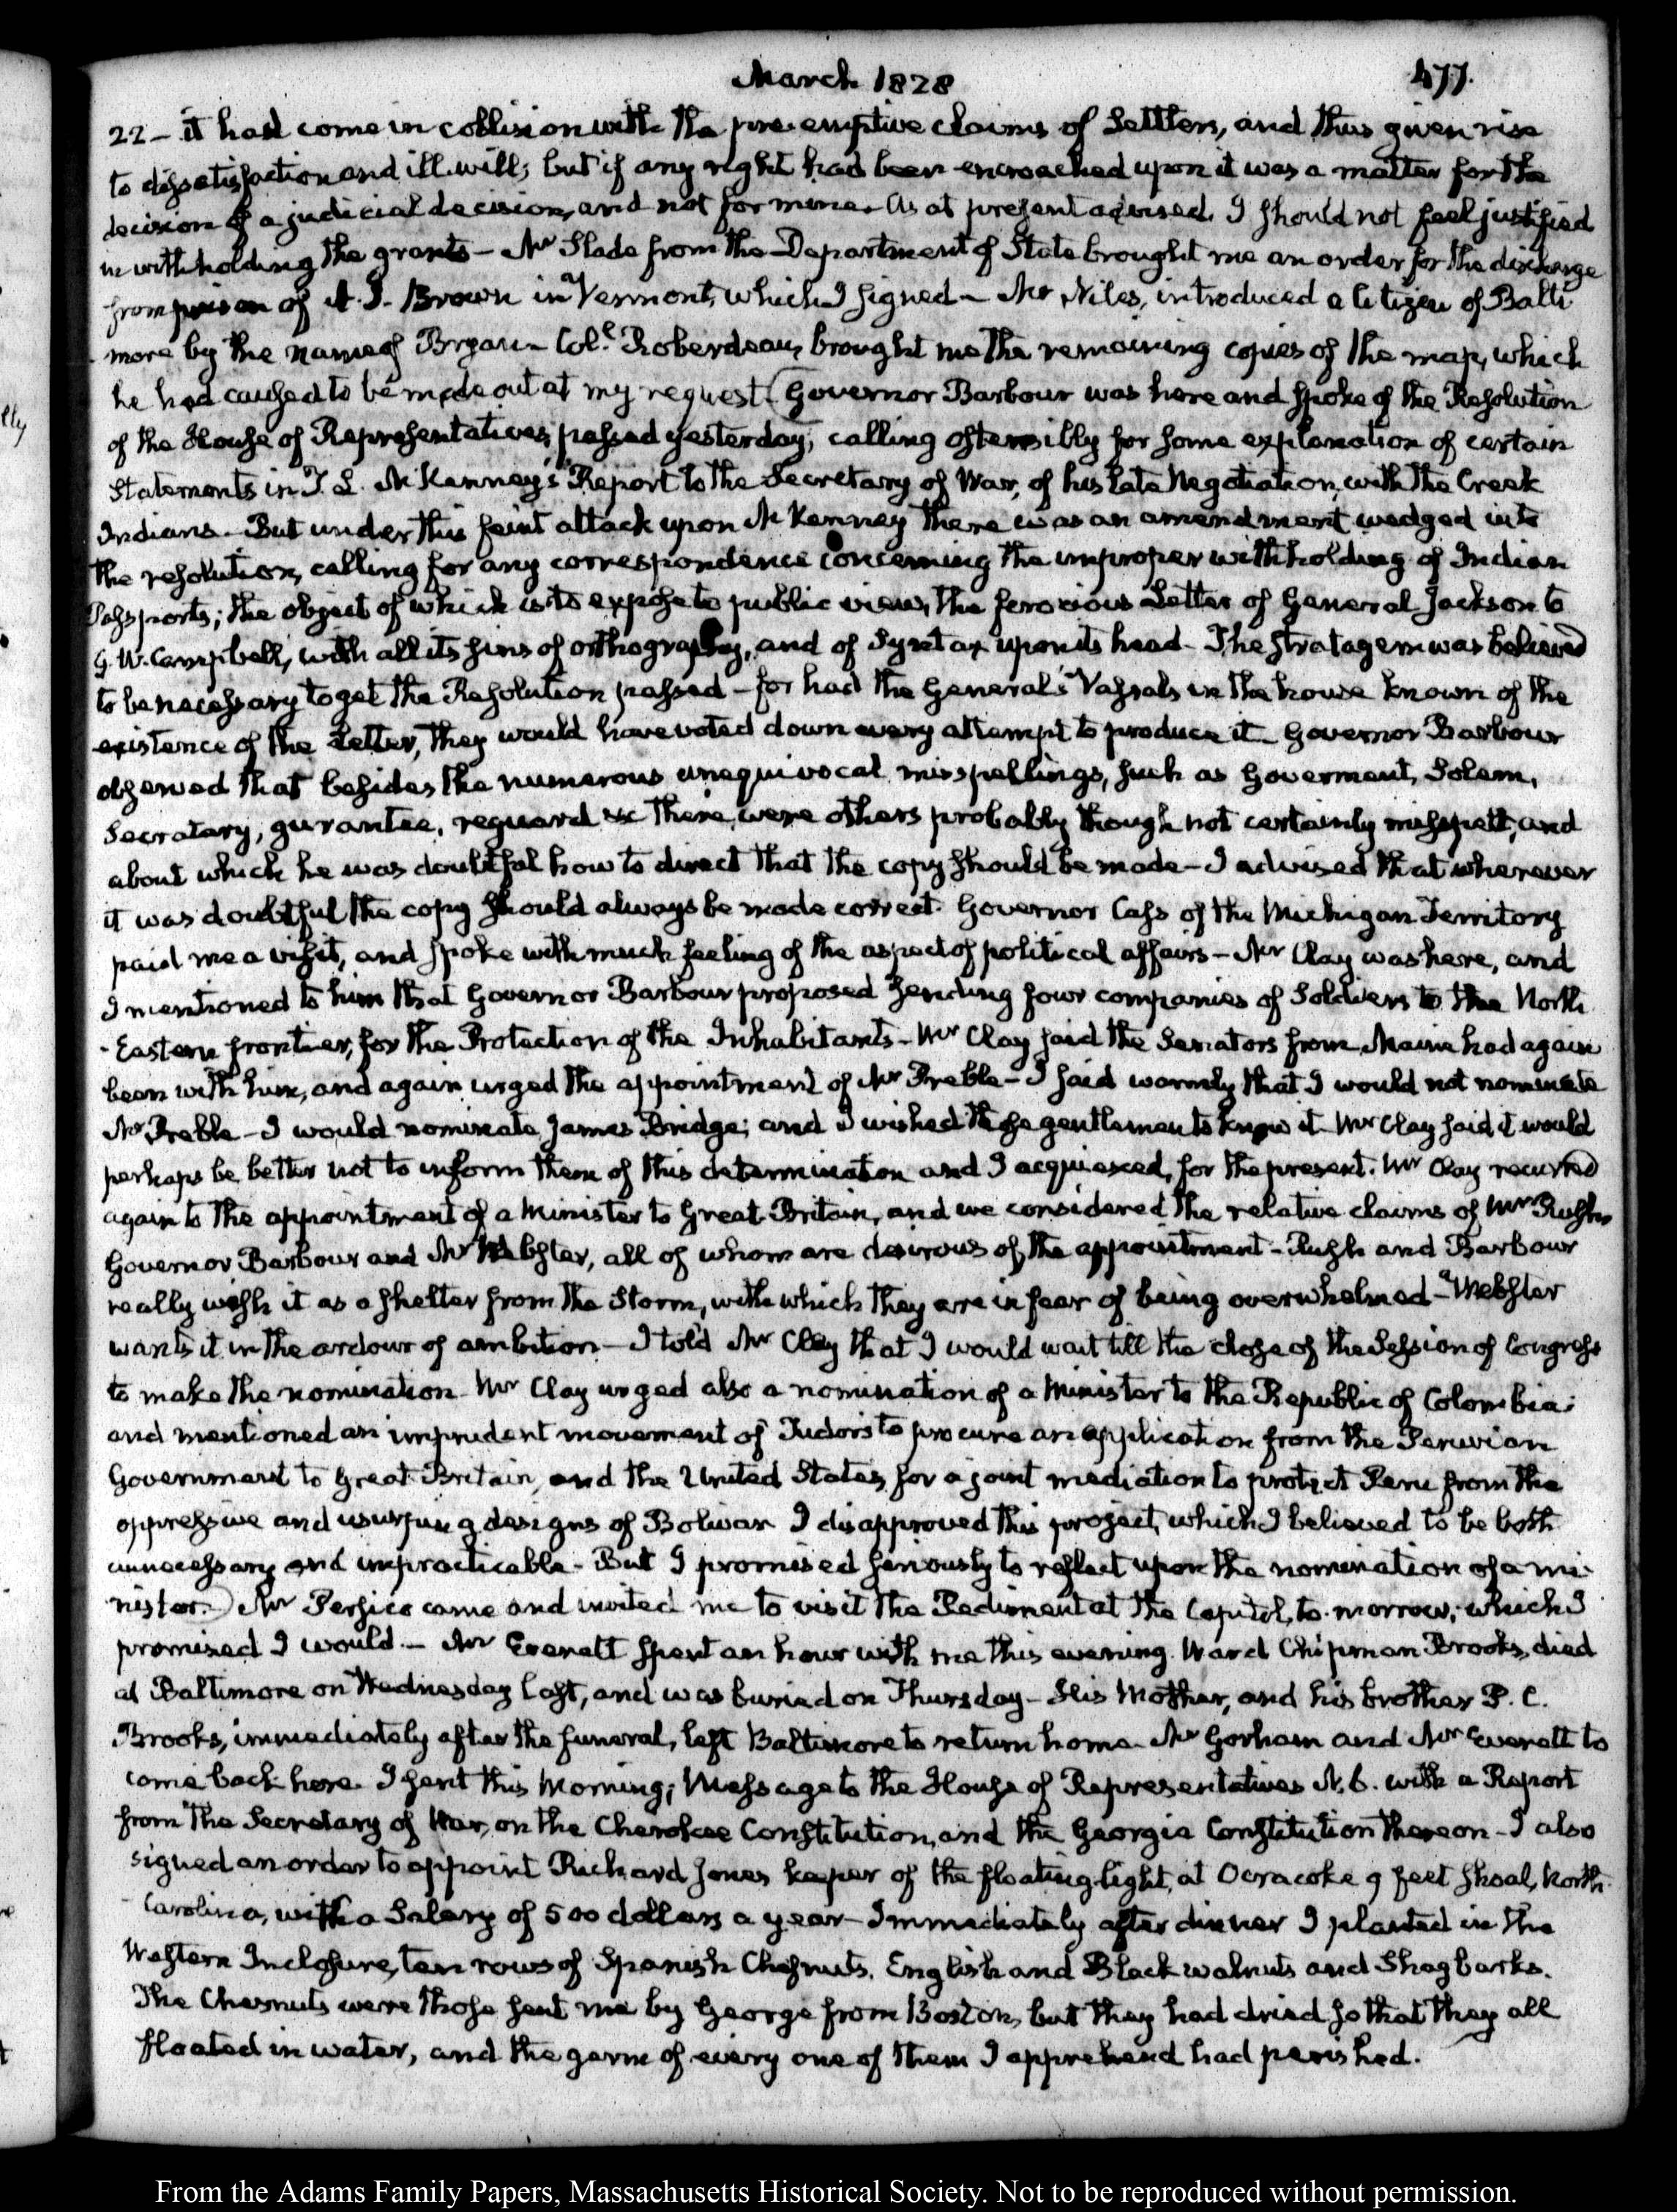 March 1828
477.
22 – it had come in collision with the pre-emptive claims of Settlers, and thus given rise
to dissatisfaction and ill will; but if any right had been encroached upon it was a matter for the
decision of a judicial decision, and not for mine. As at present advised, I should not feel justified
in withholding the grants – Mr Slade from the Department of State brought me an order for the discharge
from prison of A. J. Brown in Vermont, which I signed – Mr Niles, introduced a Citizen of Balti
more by the name of Bryan – Coll. Roberdeau, brought me the remaining copies of the map, which
he had caused to be made out at my request (Governor Barbour was here and spoke of the Resolution
of the House of Representatives, passed yesterday, calling ostensibly for some explanation of certain
Statements in T. L. McKenney's Report to the Secretary of War, of his late Negotiation, with the Creek
Indians – But under this feint attack upon McKenney there was an amendment wedged into
the resolution, calling for any correspondence concerning the improper withholding of Indian
Passports; the object of which is to expose to public view, the ferocious Letter of General Jackson to
G. W. Campbell, with all its sins of orthography, and of Syntax upon its head – The Stratagem was believed
to be necessary to get the Resolution passed – for had the General's Vassals in the house known of the
existence of the Letter, they would have voted down every attempt to produce it – Governor Barbour
observed that besides the numerous unequivocal misspellings, such as Goverment, Solem,
Secratary, gurantee, reguard &c there were others probably though not certainly misspelt, and
about which he was doubtful how to direct that the copy should be made – I advised that wherever
it was doubtful the copy should always be made correct. Governor Cass of the Michigan Territory
paid me a visit, and spoke with much feeling of the aspect of political affairs – Mr Clay was here, and
I mentioned to him that Governor Barbour proposed sending four companies of Soldiers to the North
-Eastern frontier, for the Protection of the Inhabitants – Mr Clay said the Senators from Maine had again
been with him, and again urged the appointment of Mr Preble – I said warmly that I would not nominate
Mr Preble – I would nominate James Bridge; and I wished these gentlemen to know it – Mr Clay said it would
perhaps be better not to inform them of this determination and I acquiesced, for the present. Mr Clay recurred
again to the appointment of a Minister to Great-Britain, and we considered the relative claims of Mr Rush,
Governor Barbour and Mr Webster, all of whom are desirous of the appointment – Rush and Barbour
really wish it as a shelter from the Storm, with which they are in fear of being overwhelmed – Webster
wants it in the ardour of ambition – I told Mr Clay that I would wait till the close of the Session of Congress
to make the nomination – Mr Clay urged also a nomination of a Minister to the Republic of Colombia;
and mentioned an imprudent movement of Tudor's to procure an application from the Peruvian
Government to Great-Britain, and the United States, for a joint mediation to protect Peru from the
oppressive and usurping designs of Bolivar I disapproved this project, which I believed to be both
unnecessary and impracticable – But I promised seriously to reflect upon the nomination of a mi-
nister.) Mr Persico came and invited me to visit the Pediment at the Capitol, to-morrow; which I
promised I would. – Mr Everett spent an hour with me this evening. Ward Chipman Brooks, died
at Baltimore on Wednesday last, and was buried on Thursday – His Mother, and his brother P. C.
Brooks, immediately after the funeral, left Baltimore to return home – Mr Gorham and Mr Everett to
come back here. I sent this Morning; Message to the House of Representatives N. 6. with a Report
from the Secretary of War, on the Cherokee Constitution, and the Georgia Constitution thereon – I also
signed an order to appoint Richard Jones keeper of the floating-light, at Ocracoke 9 feet shoal, North-
Carolina, with a Salary of 500 dollars a year – Immediately after dinner I planted in the
Western Inclosure, ten rows of Spanish Chesnuts, English and Black walnuts and Shagbarks.
The Chesnuts were those sent me by George from Boston, but they had dried so that they all
floated in water, and the germ of every one of them I apprehend had perished.
From the Adams Family Papers, Massachusetts Historical Society. Not to be reproduced without permission.